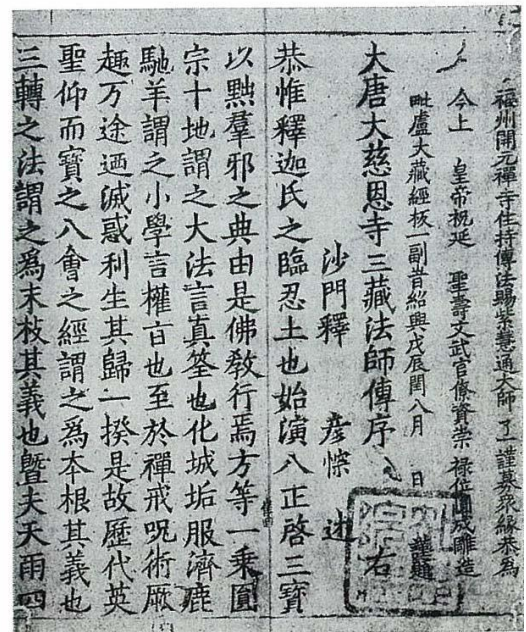 福州開元禪寺住持傳法賜紫慧通大師了一謹募眾緣恭為
今上 皇帝祝延 聖壽文武官僚資崇 祿位圓成雕造
毗盧大藏經板一副旹紹興戊辰閏八月 日 謹題
大唐大慈恩寺三藏法師傳序 右
沙門釋 彥悰 述
恭惟釋迦氏之臨忍土也始演八正啓三寶
以黜羣邪之典由是佛教行焉方等一乘圓
宗十地謂之大法言真筌也化城垢服濟鹿
馳羊謂之小學言權旨也至於禪戒呪術厥
趣万途迺滅惑利生其歸一揆是故歷代英
聖仰而寶之八會之經謂之為本根其義也
三轉之法謂之為末枝其義也暨夫天雨四